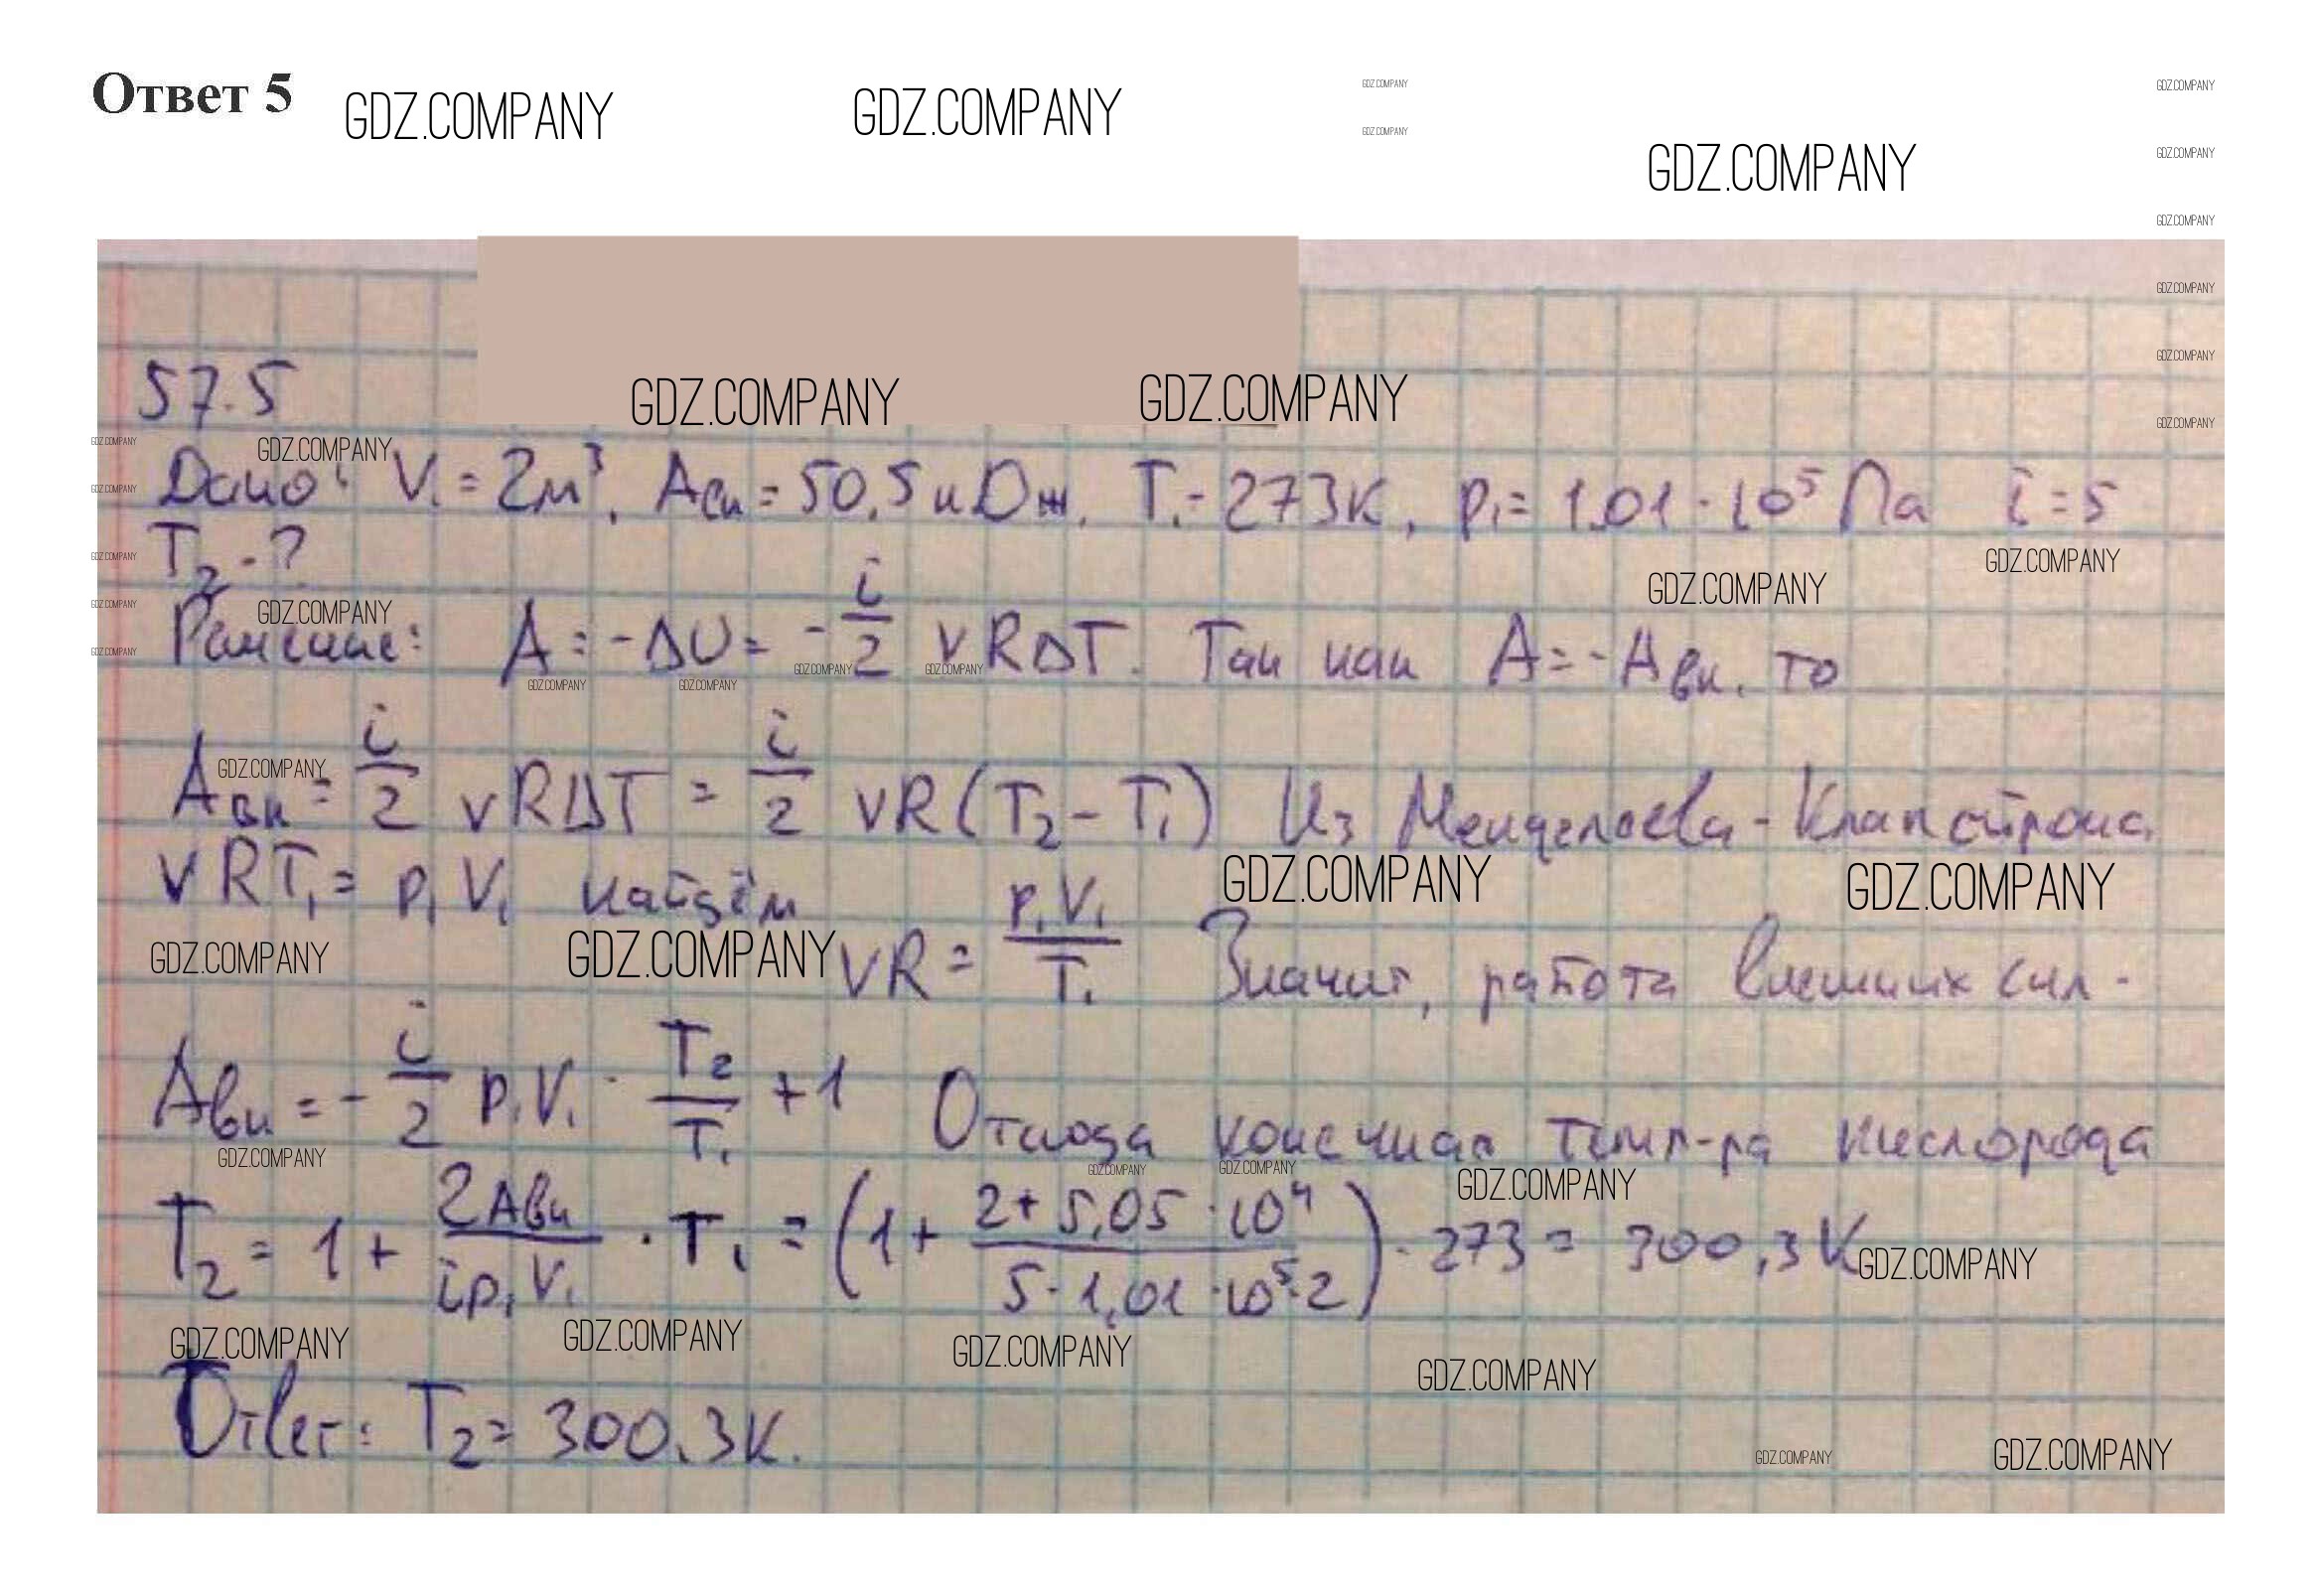 Ответ 5
GDZ.COMPANY GDZ.COMPANY GDZ.COMPANY
57.5
Дано: V₁ = 2м³, Aвн = 50,5 кДж, T₁ = 273K, p₁ = 1,01 · 10⁵ Па i = 5
T₂ - ?
Решение: A = -ΔU = - i/2 νRΔT. Так как A = -Aвн, то
Aвн = i/2 νRΔT = i/2 νR(T₂ - T₁) Из Менделеева - Клапейрона
νRT₁ = p₁V₁ найдём νR = p₁V₁/T₁ Значит, работа внешних сил -
Aвн = - i/2 p₁V₁ · T₂/T₁ + 1 Отсюда конечная темп-ра кислорода
T₂ = 1 + 2Aвн/ip₁V₁ · T₁ = (1 + 2 + 5,05 · 10⁴/5 · 1,01 · 10⁵ · 2) · 273 = 300,3 K
Ответ: T₂ = 300,3K.